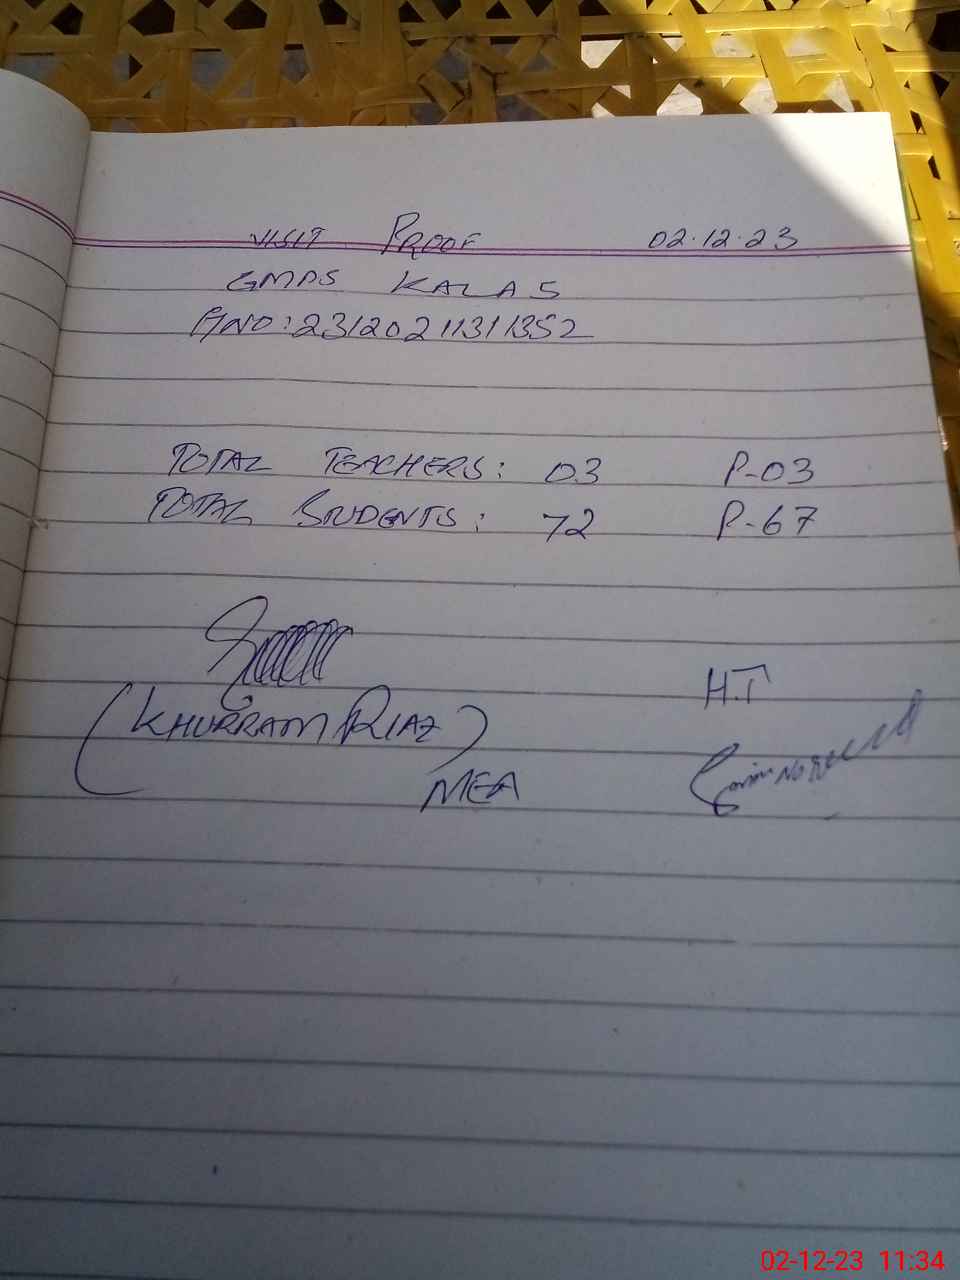 VISIT PROOF 02.12.23
GMPS KALAS
TOTAL TEACHERS: 03 P-03
TOTAL STUDENTS: 72 P-67
H.T
(KHURRAM RIAZ)
MEA
02-12-23 11:34